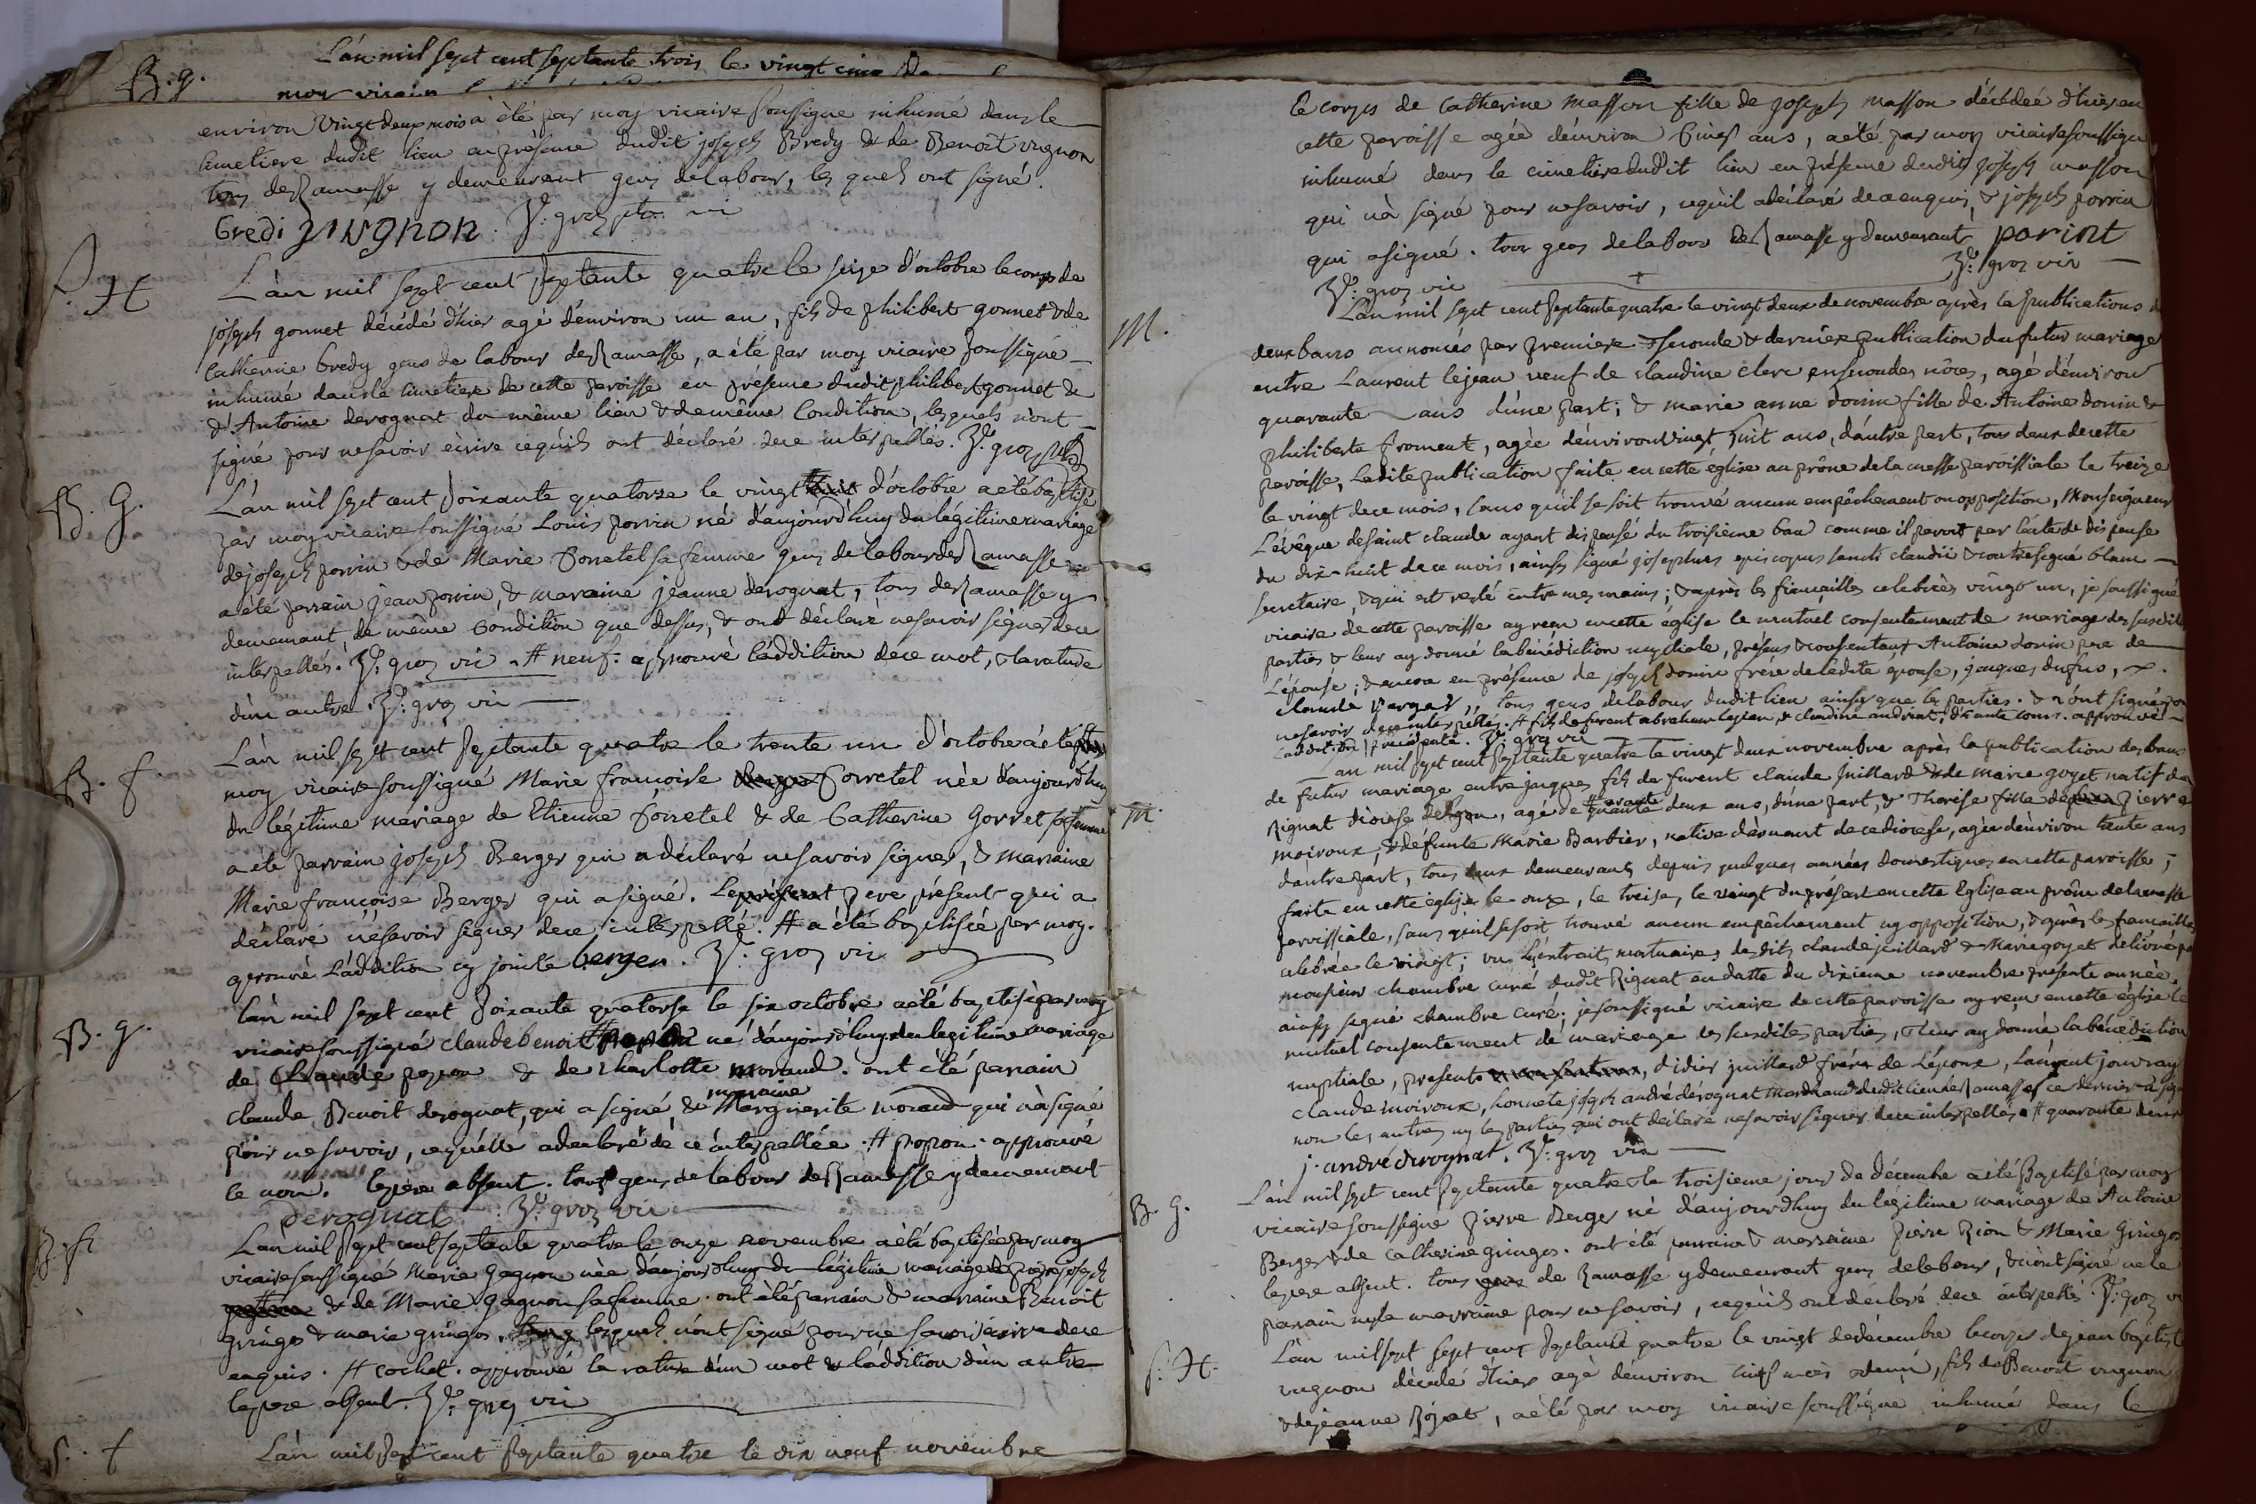 B. g.
L'an mil sept cent septante trois le vingt cinq
moy vicaire
environ vingt deux mois a été par moy vicaire soussigné inhumé dans le
cimetiere dudit lieu en présence dudit joseph Bredy & de Benoit vugnon
tous de Ramasse y demeurant gens de labour, les quels ont signé.
Gredi vugnon. gros
S. H
L'an mil sept cent septante quatre le seize d'octobre le corps de
joseph gonnet décédé d'hier agé d'environ un an, fils de philibert gonnet & de
Catherine bredy gens de labour de Ramasse, a été par moy vicaire soussigné
inhumé dans le cimetiere de cette paroisse en présence dudit philibert gonnet &
d'Antoine derognat du même lieu & de même Condition, lesquels n'ont
signé pour ne savoir écrire cequ'ils ont déclaré de ce interpellés. gros
B. G.
L'an mil sept cent soixante quatorze le vingt d'octobre a été baptisé
par moy vicaire soussigné Louis porrin né d'aujourd'huy du légitime mariage
de joseph porrin & de Marie Corretel sa femme gens de labour de Ramasse
a été parrain jean porrin, & maraine jeanne derognat, tous de Ramasse y
demeurant de même Condition que dessus, & ont déclaré ne savoir signer de ce
interpellés. gros vic # neuf: approuvé l'addition de ce mot, & la rature
d'un autre. gros vic
B. f
L'an mil sept cent septante quatre le trente un d'octobre a été
moy vicaire soussigné Marie françoise Corretel née d'aujourd'huy
du légitime mariage de Etienne Corretel & de Catherine Gorret sa femme
a été parrain joseph Berger qui a déclaré ne savoir signer, & maraine
Marie françoise Berger qui a signé. Le présent pere présent qui a
déclaré ne savoir signer de ce interpellé. # a été baptisée par moy.
aprouvé l'addition cy jointe berger. gros vic
B. g.
L'an mil sept cent soixante quatorse le six octobre a été baptisé par moy
vicaire soussigné claude benoit né d'aujourd'huy du légitime mariage
de Claude popon & de charlotte moraud. ont été parain
claude Benoit derognat, qui a signé & maraine Marguerite moraud qui n'a signé
pour ne savoir, cequ'elle a déclaré de ce interpellée. # popon. approuvé
le nom. le pere absent. tous gens de labour de Ramasse y demeurant
derognat. gros vic
B. f.
L'an mil sept cent septante quatre le onze novembre a été baptisée par moy
vicaire soussigné Marie Gagnon née d'aujourd'huy du légitime mariage de joseph
& de Marie Gagnon sa femme. ont été parain & maraine Benoit
gringos & marie gringos, lesquels n'ont signé pour ne savoir écrire de ce
enquis. # cochet. approuvé la rature d'un mot & l'addition d'un autre
le pere absent. gros vic
S. f
L'an mil sept cent septante quatre le dix neuf novembre
le corps de Catherine Masson fille de joseph masson décédée d'hier en
cette paroisse agée d'environ vingt ans, a été par moy vicaire soussigné
inhumé dans le cimetiere dudit lieu en présence dudit joseph masson
qui n'a signé pour ne savoir, cequ'il a déclaré de ce enquis, & joseph porrin
qui a signé. tous gens de labour de Ramasse y demeurant porint
gros vic
gros vic
M.
L'an mil sept cent septante quatre le vingt deux de novembre après la publications de
deux bans annonces par premiere & seconde & derniere publication du futur mariage
entre Laurent lejeau veuf de claudine clerc en secondes nôces, agé d'environ
quarante ans d'une part; & marie anne donin fille de Antoine donin &
philiberte froment, agée d'environ vingt huit ans, d'autre part, tous deux de cette
paroisse, Ladite publication faite en cette église au prône de la messe paroissiale le treize
le vingt de ce mois, sans qu'il se soit trouvé aucun empêchement ou opposition, Monseigneur
L'évêque de saint claude ayant dispensé du troisieme ban comme il paroit par l'acte de dispense
du dix huit de ce mois, ainsy signé josephus episcopus sancti claudii & contresigné blanc
secretaire, & qui est resté entre mes mains; & après les fiançailles celebrées vingt un, je soussigné
vicaire de cette paroisse ay reçu en cette église le mutuel consentement de mariage des susdites
parties & leur ay donné la bénédiction nuptiale, présens & consentant Antoine donin pere de
L'épouse; & encor en présence de joseph donin frere de ladite epouse, jacques dufus, &.
claude berger,, tous gens de labour dudit lieu ainsy que les parties. & n'ont signé pour
ne savoir de ce interpellés. # fils de furent abraham lejean, & claudine andriat; approuvé
l'addition présente. gros vic
M.
an mil sept cent septante quatre le vingt deux novembre après la publication des bans
de futur mariage entre jacques fils de furent claude juillard & de marie goyet natif de
Rignat diocese de Lyon, agé de quarante deux ans, d'une part, & Therése fille de pierre
moiroux, & défunte Marie Barbier, native de ce diocese, agée d'environ trente ans
d'autre part, tous deux demeurants depuis quelques années domestiques en cette paroisse;
faite en cette église le onze, le treise, le vingt du présent en cette Eglise au prône de la messe
paroissiale, sans qu'il se soit trouvé aucun empêchement ny opposition, & après les fiançailles
celebrée le vingt; vu l'extrait mortuaires desdits claude juillard & Marie goyet délivré par
monsieur chambre curé dudit Rignat en datte du dixieme novembre presente année
ainsy signé chambre curé; je soussigné vicaire de cette paroisse ay reçu en cette église le
mutuel consentement de mariage des susdites parties, & leur ay donné la bénédiction
nuptiale, presents, didier juillard frere de L'époux, laurent jouvray
claude moiroux, honnete joseph andré derognat marchand dudit lieu de Ramasse, ce dernier a signé
non les autres ny les parties qui ont déclaré ne savoir signer de ce interpellés. # quarante deux
j. andré derognat. gros vic
B. G.
L'an mil sept cent septante quatre & le troisieme jour de décembre a été Baptisé par moy
vicaire soussigné pierre Berger né d'aujourd'huy du légitime mariage de Antoine
Berger & de catherine gringos. ont été parrain & marraine pierre Rion & Marie Gringos
le pere absent. tous gens de Ramasse y demeurant gens de labour, & n'ont signé ne le
parain ny la marraine pour ne savoir, cequ'ils ont déclaré de ce interpellés. gros vic
S. H.
L'an mil sept sept cent septante quatre le vingt de décembre le corps de jean baptiste
vugnon décédé d'hier agé d'environ mois & demi, fils de Benoit vugnon
& de jeanne, a été par moy vicaire soussigné inhumé dans le